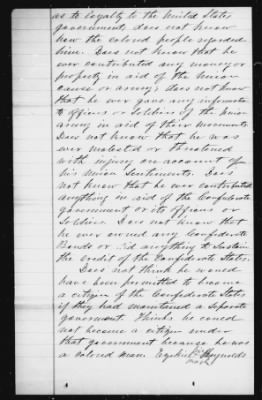 as to loyalty to the United States
government, does not know
how the colored people regarded
him. Does not know that he
ever contributed any money or
property in aid of the Union
cause or army; does not know
that he ever gave any information
to officers or soldiers of the Union
army in aid of their movements
Does not know that he was
ever molested or threatened
with injury on account of
his Union Sentiments. Does
not know that he ever contributed
anything in aid of the Confederate
government or its officers or
soldiers. Does not know that
he ever owned any Confederate
Bonds or did anything to Sustain
the credit of the Confederate States.
Does not think he would
have been permitted to become
a citizen of the Confederate States
if they had maintained a seperate
government. Thinks he could
not become a citizen under
that government because he was
a colored man. Ezekiel Reynolds
mark